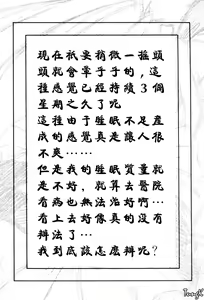 現在祇要稍微一搖頭
頭就會暈乎乎的，這
種感覺已經持續3個
星期之久了呢
這種由于睡眠不足產
成的感覺真是讓人很
不爽……
但是我的睡眠質量就
是不好，就算去醫院
看病也無法治好啊…
看上去好像真的沒有
辦法了…
我到底該怎麼辦呢？